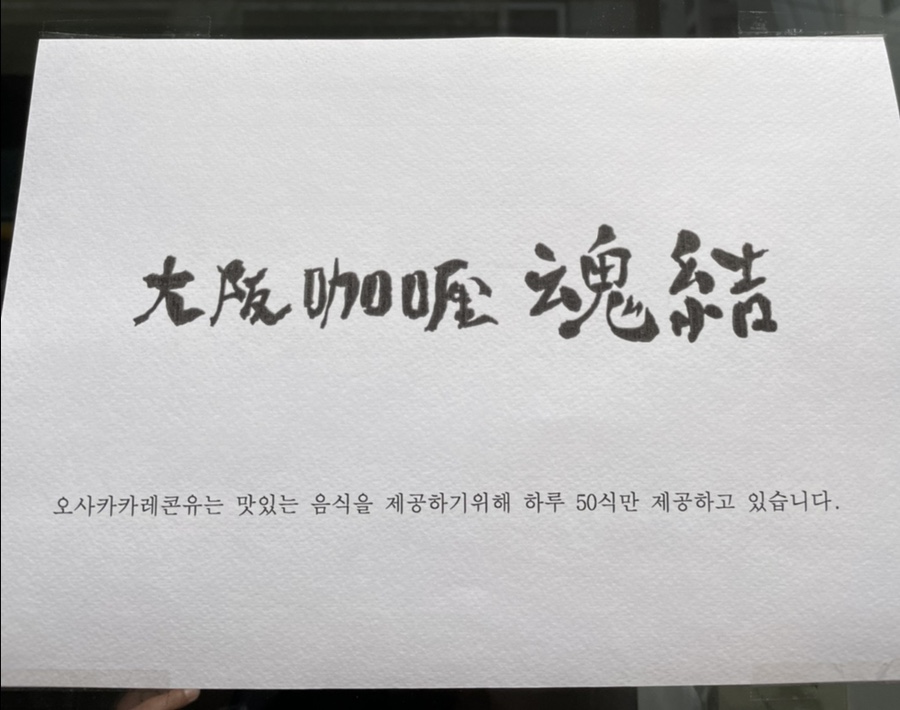 大阪咖喱 魂結
오사카카레콘유는 맛있는 음식을 제공하기위해 하루 50식만 제공하고 있습니다.